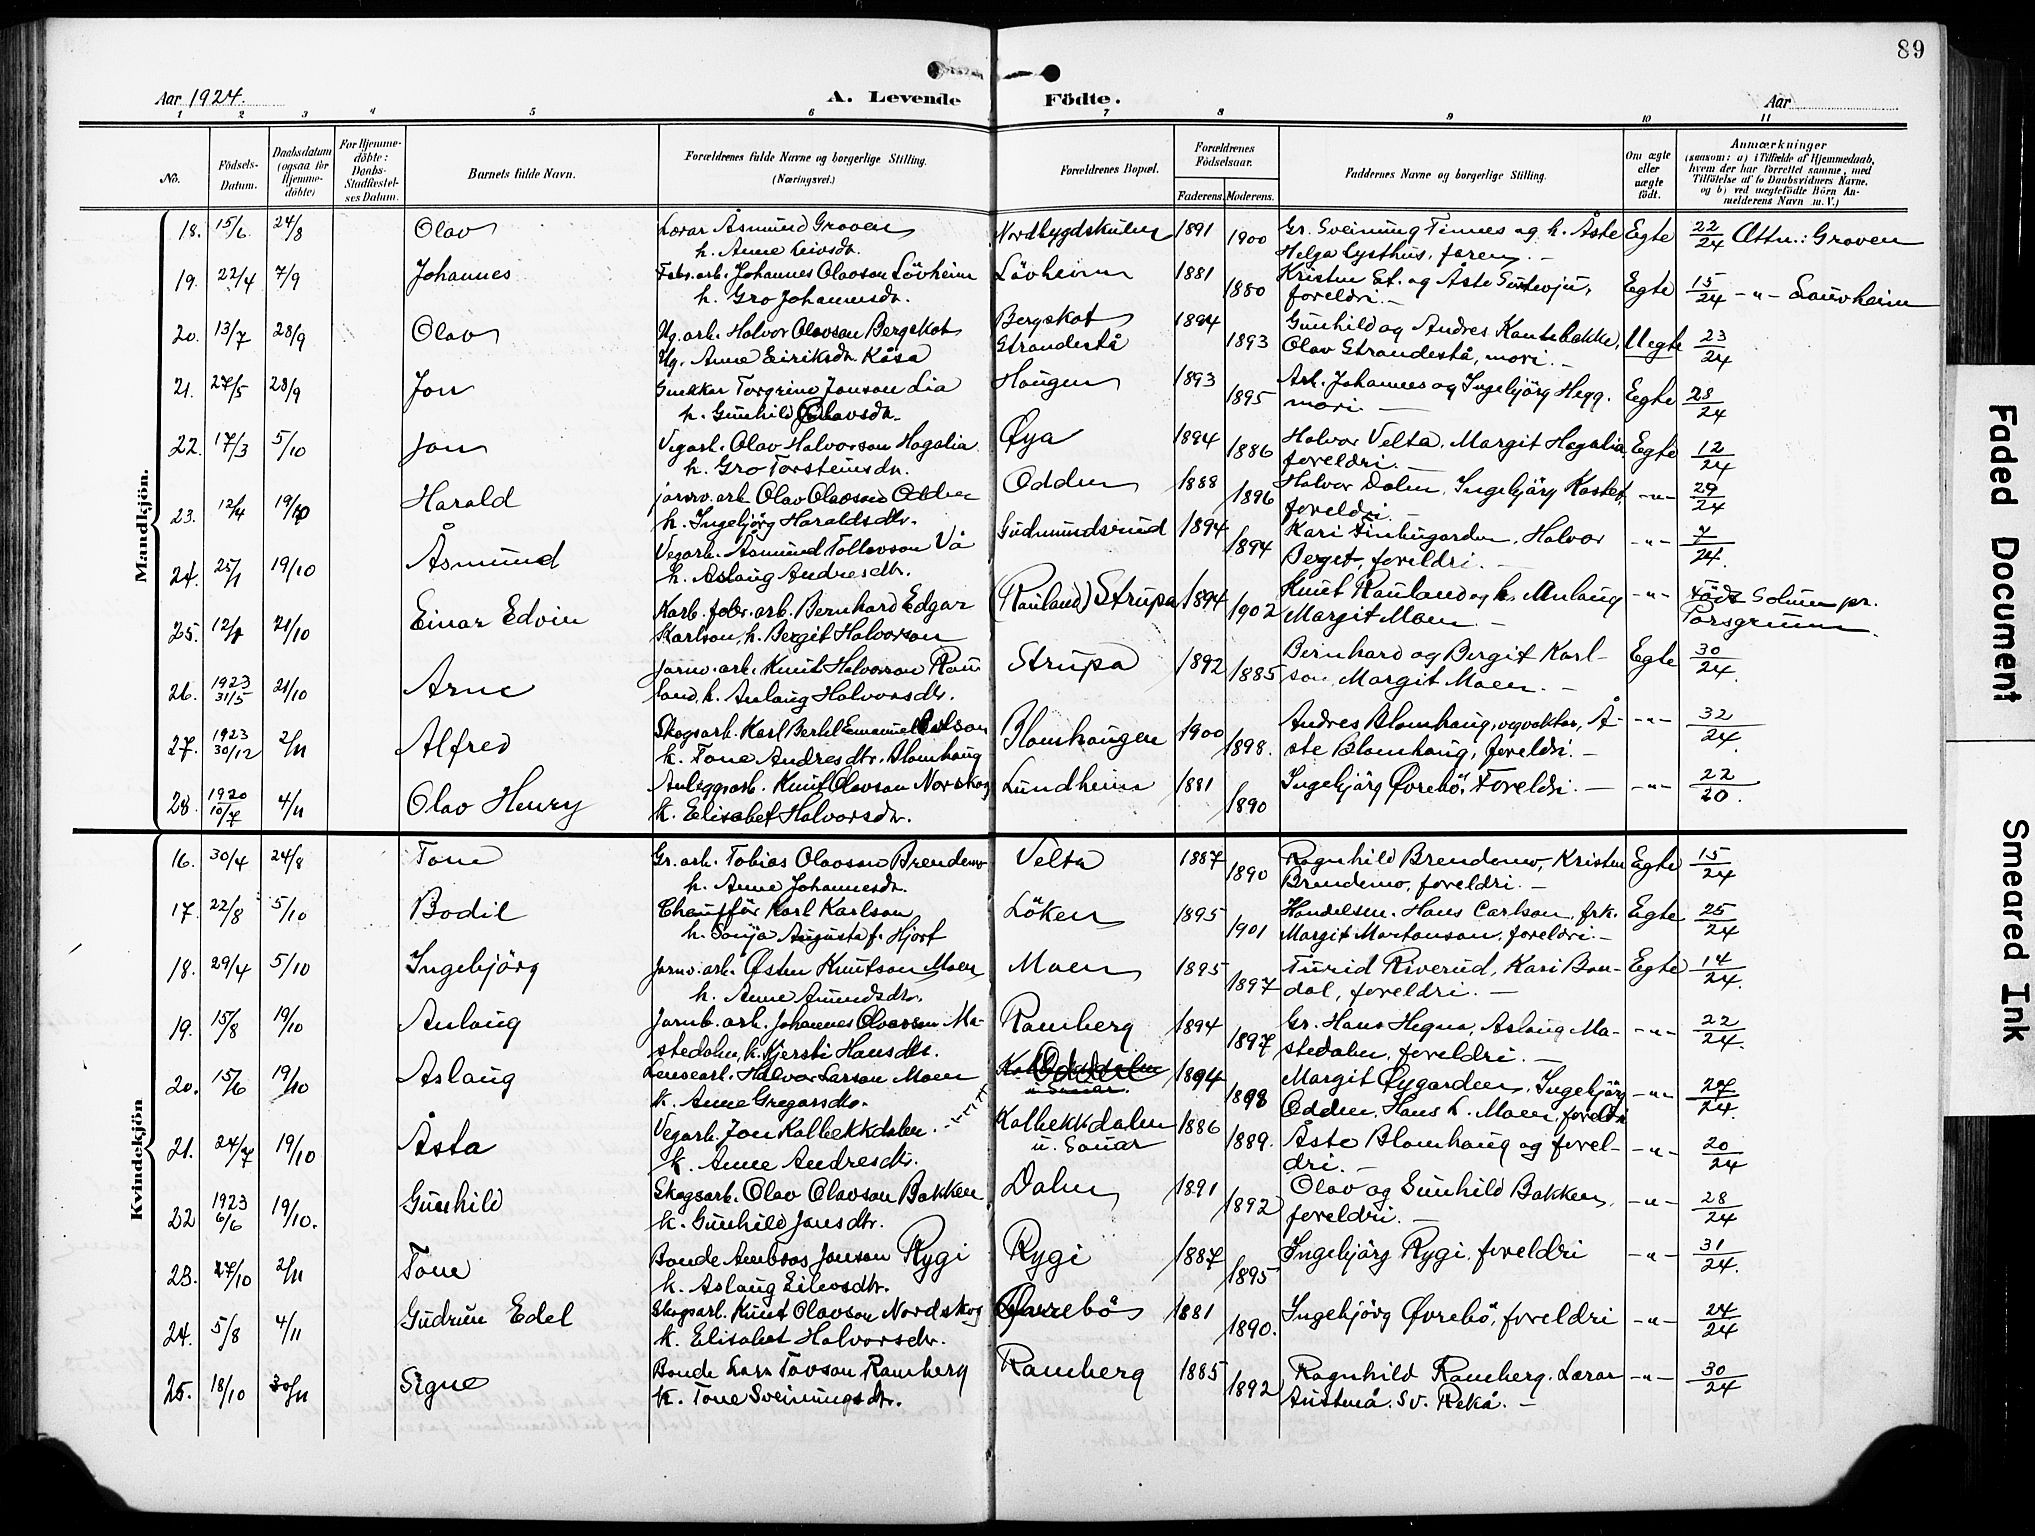 89
Aar 1924.
A. Levende Födte.
Aar
1 2 3 4 5 6 7 8 9 10 11
No.
Födsels-Datum.
Daabsdatum (ogsaa for Hjemmedöbte)
For Hjemmedöbte: Daabs-Stadfæstelses Datum.
Barnets fulde Navn.
Forældrenes fulde Navne og borgerlige Stilling. (Næringsvei.)
Forældrenes Bopæl.
Forældrenes Födselsaar.
Faderens. Moderens.
Faddernes Navne og borgerlige Stilling.
Om ægte eller uægte födt.
Anmærkninger (saasom: a) i Tilfælde af Hjemmedaab, hvem der har forrettet samme, med Tilföielse af to Daabsvidners Navne, og b) ved uegtefödte Börn Anmelderens Navn m. V.)
Mandkjön.
18. 15/6 24/8 Olav Lærar Åsmund Groven Nordbygdskulen 1891 1900 Gr. Sveinung Tinnes og k. Åste Egte 22/24 Ættn.: Groven
k. Anne Leivsdtr. Helga Lysthus, faren. -
19. 22/4 7/9 Johannes Fabr.arb. Johannes Olavson Lövheim Lövheim 1881 1880 Kristen Et. og Åste Egte 15/24 -"- Lauvheim
k. Gro Johannesdtr. foreldri. -
20. 13/7 28/9 Olav Ug. arb. Halvor Olavson Bergskot Bergskot 1894 1893 Gunhild og Andres Kaasebakke, Uegte 23/24
Ug. Anne Eiriksdtr. Kåsa Strandestå Olav Strandestå, mori. -
21. 27/5 28/9 Jon Snekkar Torgrim Jonson Lia Haugen 1893 1895 Arb. Johannes og Ingebjörg Hegg. Egte 28/24
k. Gunhild Olavsdtr. mori -
22. 17/3 5/10 Jon Vegarb. Olav Halvorson Hagalia Øya 1894 1886 Halvor Velta, Margit Hagalia Egte 12/24
k. Gro Torsteinsdtr. foreldri. -
23. 12/4 19/10 Harald jarnv.arb. Olav Olavson Odden Odden 1888 1896 Halvor Dalen, Ingebjörg Kastet, -"- 29/24
k. Ingebjörg Haraldsdtr. foreldri. -
24. 25/1 19/10 Åsmund Vegarb. Åsmund Tollavson Vå Gudmundsrud 1894 1894 Kari Finbugarden, Halvor -"- 7/24.
k. Aslaug Andresdtr. Berget, foreldri. -
25. 12/8 21/10 Einar Edvin Karb. fabr. arb. Bernhard Edgar (Rauland) Strupa 1894 1902 Knut Rauland og k. Anlaug -"- Födt Solum pr.
Karlson, k. Bergit Halvorson Margit Moen. - Porsgrunn.
26. 1923 31/5 21/10 Arne Jarnv. arb. Knut Halvorson Rau- Strupa 1892 1885 Bernhard og Bergit Karl- Egte 30/24.
land, k. Anlaug Halvorsdtr. son, Margit Moen. -
27. 1923 30/12 2/11 Alfred Skogsarb. Karl Bertel Emanuel Olson Blomhaugen 1900 1898. Andres Blomhaug, vegvaktar, Å- -"- 32/24.
k. Tone Andresdtr. Blomhaug ste Blomhaug, foreldri. -
28. 1920 10/7 4/11 Olav Henry Anleggsarb. Knut Olavson Norskog Lundheim 1881 1890 Ingebjörg Øvrebö, Foreldri. - -"- 22/20.
k. Elisabet Halvorsdtr.
Kvindekjön
16. 30/4 24/8 Tone Gr. arb. Tobias Olavson Brendemo Velta 1887 1890 Ragnhild Brendemo, Kristen Egte 15/24
k. Anne Johannesdtr. Brendemo, foreldri. -
17. 22/8 5/10 Bodil Chaufför Karl Karlson Löken 1895 1901 Handelsm. Hans Carlson, frk. Egte 25/24
k. Sonja Augusta f. Hjort Margit Martenson, foreldri. -
18. 29/4 5/10 Ingebjörg Jarnv. arb. Östen Knutson Moen Moen 1895 1897 Turid Riverud, Kari Bon- Egte 14/24.
k. Anne Amundsdtr. dal, foreldri. -
19. 15/8 19/10 Anlaug Jarnb. arb. Johannes Olavson Ma- Ramberg 1894 1897 Gr. Hans Hegna, Aslaug Ma- -"- 22/24.
stedalen, k. Kjersti Hansdtr. stedalen, foreldri. -
20. 15/6 19/10 Aslaug Lensearb. Halvor Larson Moen Odden 1894 1898 Margit Øygarden, Ingebjörg -"- 27/24.
k. Anne Gregarsdtr. Odden, Hans L. Moen, foreldri
21. 24/7 19/10 Åsta Vegarb. Jon Kalbekkdalen Kalbekkdalen 1886 1889. Åste Blomhaug og forel- -"- 20/24
k. Anne Andresdtr. u. Sauar dri. -
22 1923 6/6 19/10. Gunhild Skogsarb. Olav Olavson Bakken Dalen 1891 1892 Olav og Gunhild Bakken, -"- 28/24
k. Gunhild Jonsdtr. foreldri. -
23. 27/10 2/11 Tone Bonde Ambros Jonson Rygi Rygi 1887 1895 Ingebjörg Rygi, foreldri -"- 31/24.
k. Aslaug Eilevsdtr.
24. 5/8 4/11 Gudrun Edel Skogsarb. Knut Olavson Nordskog Øvrebö 1881 1890. Ingebjörg Øvrebö, foreldri -"- 24/24
k. Elisabet Halvorsdtr.
25. 18/10 30/11 Signe Bonde Lars Tovson Ramberg Ramberg 1885 1892 Ragnhild Ramberg. Lærar -"- 30/24
k. Tone Sveinungsdtr. Austenå. Sv. Rekå. -
Faded Document
Smeared Ink